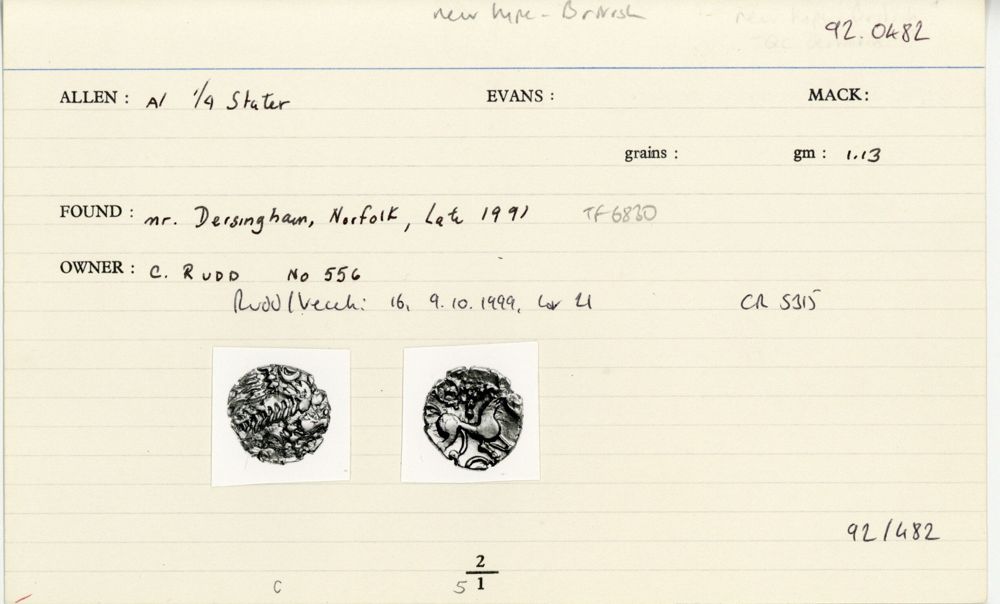 new type - British
92.0482
ALLEN: A/ 1/4 Stater EVANS: MACK:
grains: gm: 1.13
FOUND: nr. Dersingham, Norfolk, Late 1991 TF 6830
OWNER: C. RUDD No 556
Rudd/Vecchi 16, 9.10.1999, Lot 21 CR 5315
92/482
C 5 2/1